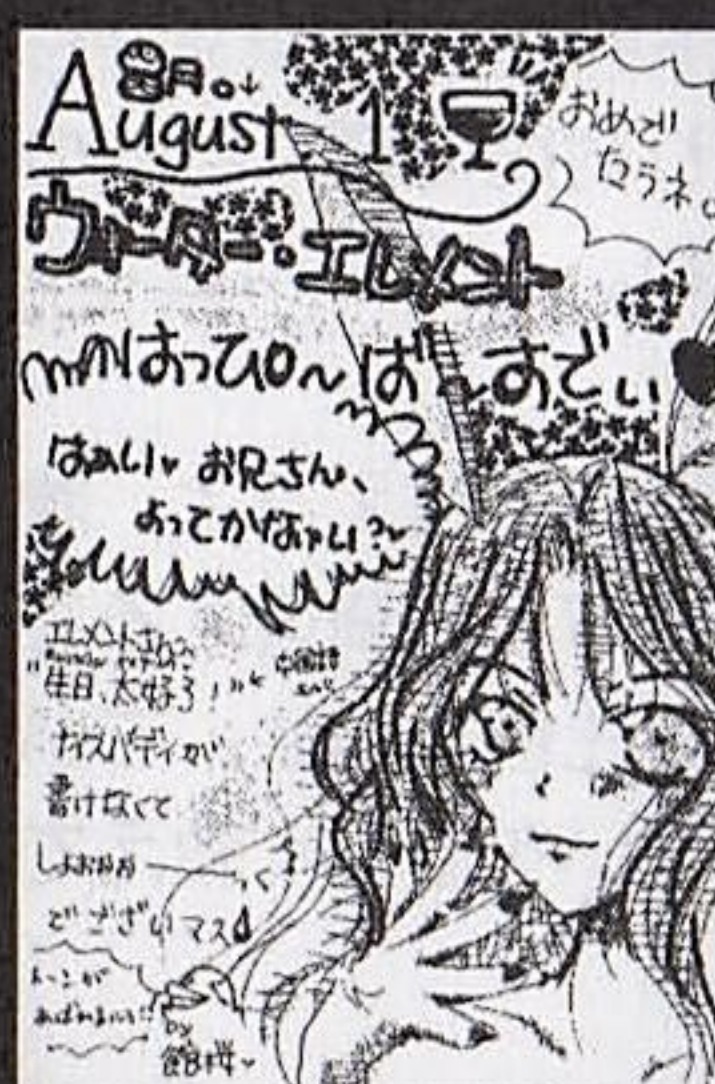 8月。↓
August 1
おめで
とうネ。
ウォーター・エレメント
はっぴ〜ば〜すでぃ
はぁい♥ お兄さん、
よってかなぁい?♥
エレメントさんへ
"生日、太好了!"← 中国語
ナイスバディが
書けなくて
しょおゆる
でございマス
トーンが
あばれるいい!!
by
館桜♥